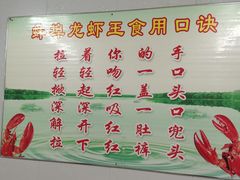 蚌埠龙虾王食用口诀
拉着你的手
轻轻吻一口
掀起红盖头
深深吸一口
解开红肚兜
拉下红裤头